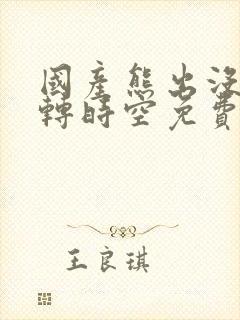 國產熊出沒
轉時空免費
王良琪